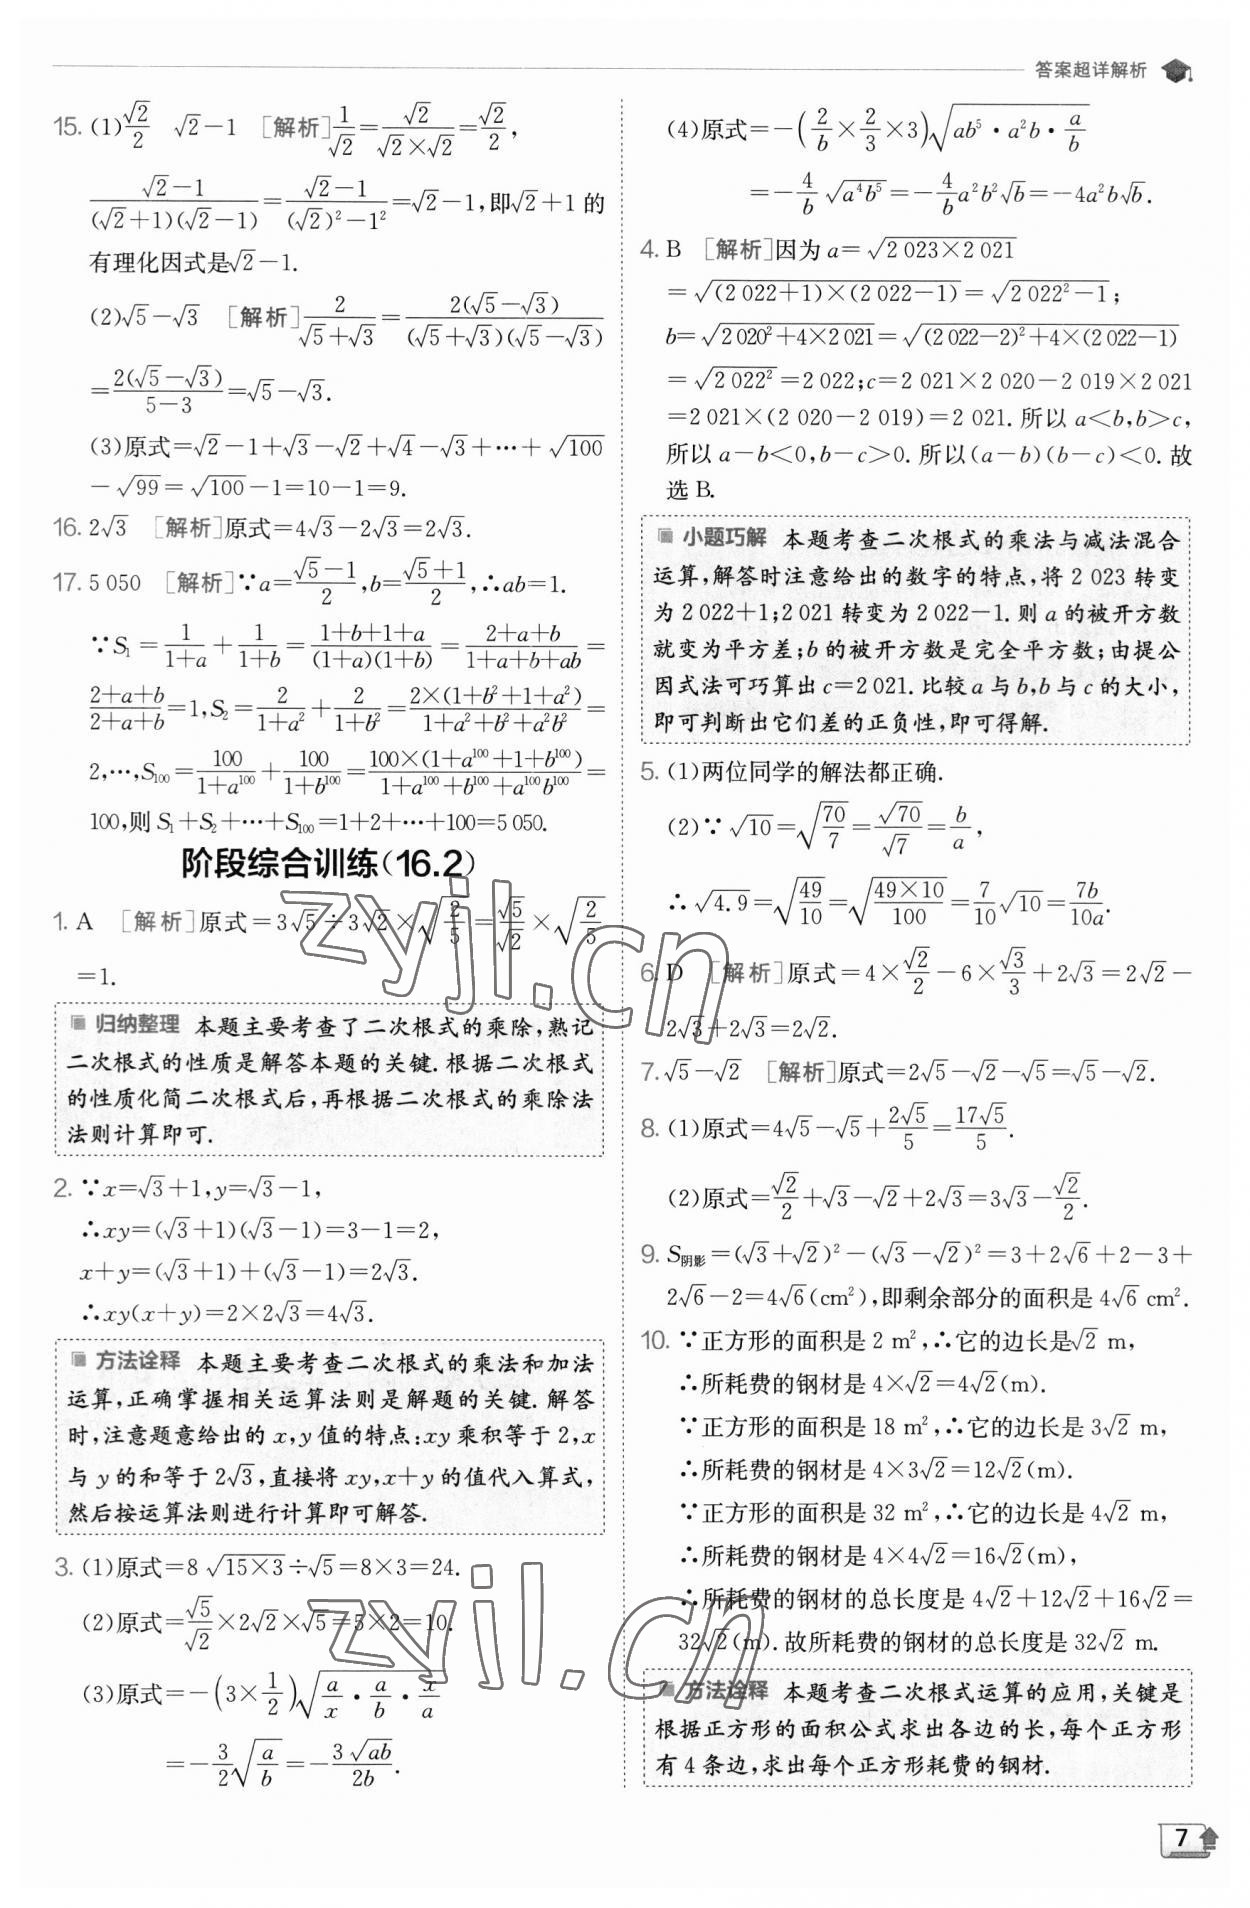 答案超详解析
15. (1)√2/2　√2－1　[解析]1/√2＝√2/(√2×√2)＝√2/2,
(√2－1)/((√2＋1)(√2－1))＝(√2－1)/((√2)²－1²)＝√2－1,即√2＋1的
有理化因式是√2－1.
(2)√5－√3　[解析]2/(√5＋√3)＝2(√5－√3)/((√5＋√3)(√5－√3))
＝2(√5－√3)/(5－3)＝√5－√3.
(3)原式＝√2－1＋√3－√2＋√4－√3＋⋯＋√100
－√99＝√100－1＝10－1＝9.
16. 2√3　[解析]原式＝4√3－2√3＝2√3.
17. 5 050　[解析]∵a＝(√5－1)/2,b＝(√5＋1)/2,∴ab＝1.
∵S₁＝1/(1＋a)＋1/(1＋b)＝(1＋b＋1＋a)/((1＋a)(1＋b))＝(2＋a＋b)/(1＋a＋b＋ab)＝
(2＋a＋b)/(2＋a＋b)＝1,S₂＝2/(1＋a²)＋2/(1＋b²)＝2×(1＋b²＋1＋a²)/(1＋a²＋b²＋a²b²)＝
2,⋯,S₁₀₀＝100/(1＋a¹⁰⁰)＋100/(1＋b¹⁰⁰)＝100×(1＋a¹⁰⁰＋1＋b¹⁰⁰)/(1＋a¹⁰⁰＋b¹⁰⁰＋a¹⁰⁰b¹⁰⁰)＝
100,则S₁＋S₂＋⋯＋S₁₀₀＝1＋2＋⋯＋100＝5 050.
阶段综合训练(16.2)
1. A　[解析]原式＝3√5÷3√2×√(2/5)＝√5/√2×√(2/5)
＝1.
归纳整理　本题主要考查了二次根式的乘除,熟记
二次根式的性质是解答本题的关键.根据二次根式
的性质化简二次根式后,再根据二次根式的乘除法
法则计算即可.
2. ∵x＝√3＋1,y＝√3－1,
∴xy＝(√3＋1)(√3－1)＝3－1＝2,
x＋y＝(√3＋1)＋(√3－1)＝2√3.
∴xy(x＋y)＝2×2√3＝4√3.
方法诠释　本题主要考查二次根式的乘法和加法
运算,正确掌握相关运算法则是解题的关键.解答
时,注意题意给出的x,y值的特点:xy乘积等于2,x
与y的和等于2√3,直接将xy,x＋y的值代入算式,
然后按运算法则进行计算即可解答.
3. (1)原式＝8√(15×3)÷√5＝8×3＝24.
(2)原式＝√5/√2×2√2×√5＝5×2＝10.
(3)原式＝－(3×1/2)√(a/x·a/b·x/a)
＝－3/2√(a/b)＝－3√(ab)/2b.
(4)原式＝－(2/b×2/3×3)√(ab⁵·a²b·a/b)
＝－4/b√(a⁴b⁵)＝－4/b a²b²√b＝－4a²b√b.
4. B　[解析]因为a＝√(2 023×2 021)
＝√((2 022＋1)×(2 022－1))＝√(2 022²－1);
b＝√(2 020²＋4×2 021)＝√((2 022－2)²＋4×(2 022－1))
＝√(2 022²)＝2 022;c＝2 021×2 020－2 019×2 021
＝2 021×(2 020－2 019)＝2 021.所以a＜b,b＞c,
所以a－b＜0,b－c＞0.所以(a－b)(b－c)＜0.故
选B.
小题巧解　本题考查二次根式的乘法与减法混合
运算,解答时注意给出的数字的特点,将2 023转变
为2 022＋1;2 021转变为2 022－1.则a的被开方数
就变为平方差;b的被开方数是完全平方数;由提公
因式法可巧算出c＝2 021.比较a与b,b与c的大小,
即可判断出它们差的正负性,即可得解.
5. (1)两位同学的解法都正确.
(2)∵√10＝√(70/7)＝√70/√7＝b/a,
∴√4.9＝√(49/10)＝√((49×10)/100)＝7/10√10＝7b/10a.
6. D　[解析]原式＝4×√2/2－6×√3/3＋2√3＝2√2－
2√3＋2√3＝2√2.
7. √5－√2　[解析]原式＝2√5－√2－√5＝√5－√2.
8. (1)原式＝4√5－√5＋2√5/5＝17√5/5.
(2)原式＝√2/2＋√3－√2＋2√3＝3√3－√2/2.
9. S阴影＝(√3＋√2)²－(√3－√2)²＝3＋2√6＋2－3＋
2√6－2＝4√6(cm²),即剩余部分的面积是4√6 cm².
10. ∵正方形的面积是2 m²,∴它的边长是√2 m,
∴所耗费的钢材是4×√2＝4√2(m).
∵正方形的面积是18 m²,∴它的边长是3√2 m,
∴所耗费的钢材是4×3√2＝12√2(m).
∵正方形的面积是32 m²,∴它的边长是4√2 m,
∴所耗费的钢材是4×4√2＝16√2(m),
∴所耗费的钢材的总长度是4√2＋12√2＋16√2＝
32√2(m).故所耗费的钢材的总长度是32√2 m.
方法诠释　本题考查二次根式运算的应用,关键是
根据正方形的面积公式求出各边的长,每个正方形
有4条边,求出每个正方形耗费的钢材.
7
zyjl.cn
zyjl.cn